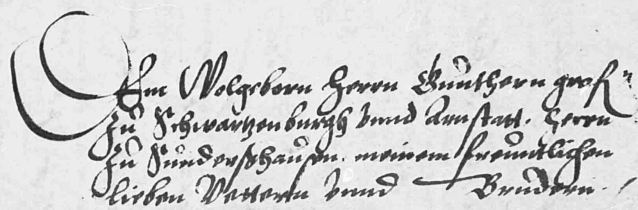 Dem Wolgeborn Herrn Gunthern graff
zu Schwartzenburgk vnnd Arnstatt. Herrn
zu Sunderßhausen. meinem freuntlichen
lieben Vettern vnnd Brudern.